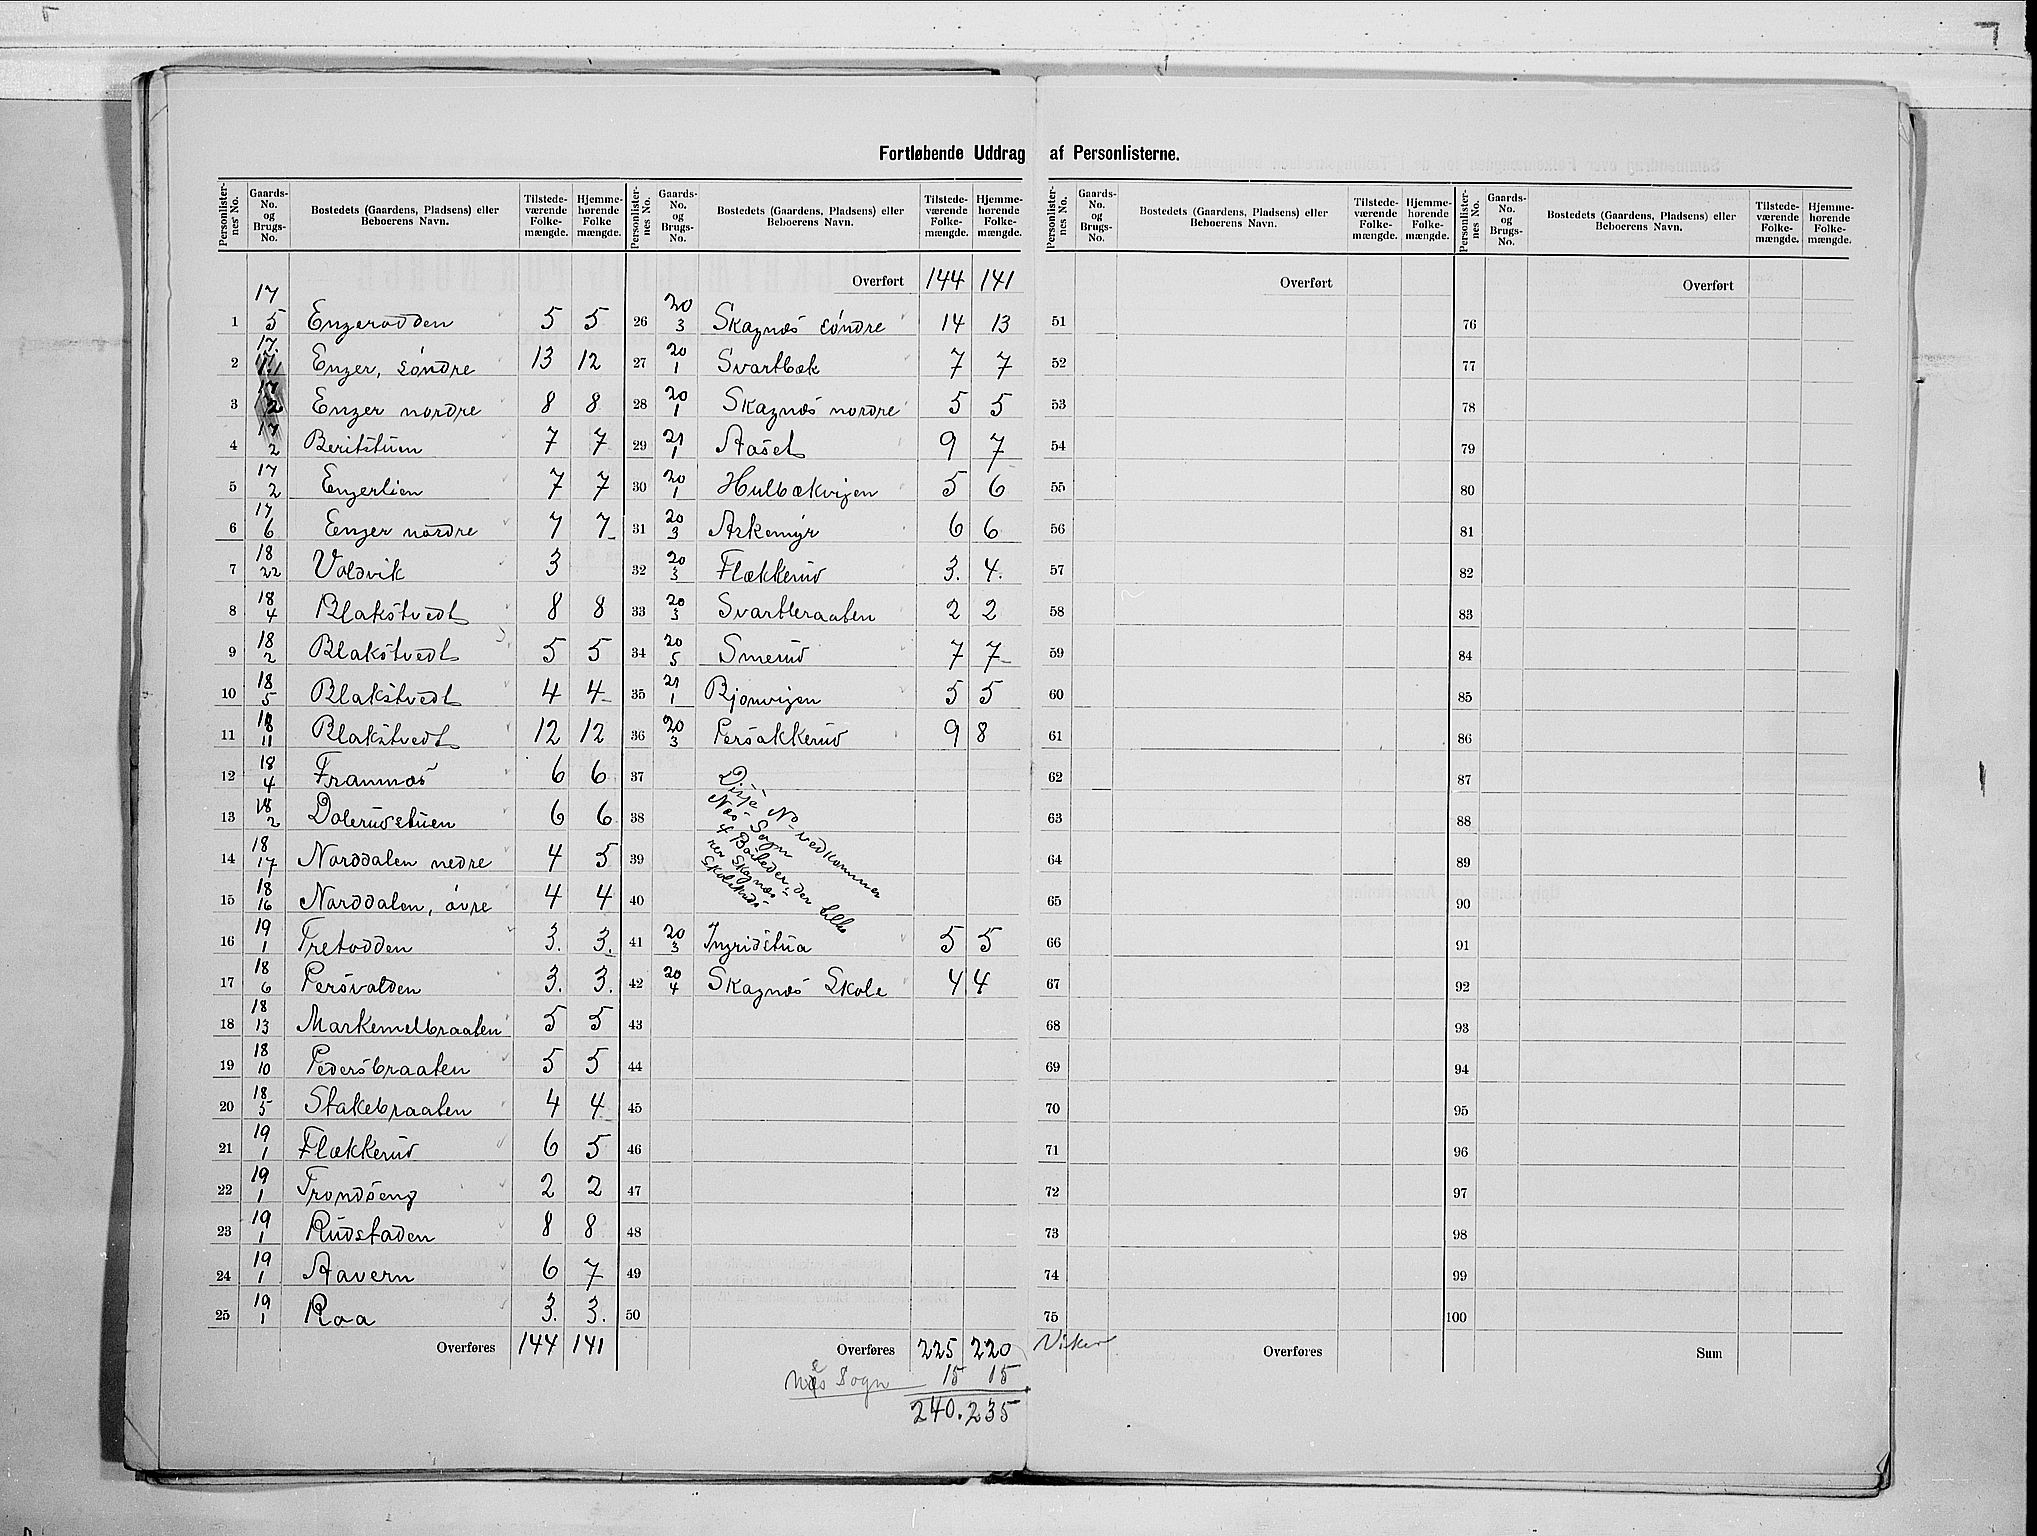 Fortløbende Uddrag af Personlisterne.
Personlister-nes No. | Gaards-No. og Brugs-No. | Bostedets (Gaardens, Pladsens) eller Beboerens Navn. | Tilstede-værende Folke-mængde. | Hjemme-hørende Folke mængde.
1 17 5 Engerodden 5 5
2 17. 17.1 Enger, søndre 13 12
3 17 2 Enger nordre 8 8
4 17 2 Beritstuen 7 7
5 17 2 Engerlien 7 7
6 17 6 Enger nordre 7 7
7 18 22 Valdvik 3
8 18 4 Blakstvedt 8 8
9 18 2 Blakstvedt 5 5
10 18 5 Blakstvedt 4 4
11 18 11 Blakstvedt 12 12
12 18 4 Framnæs 6 6
13 18 2 Dolerudstuen 6 6
14 18 17 Narddalen nedre 4 5
15 18 16 Narddalen, øvre 4 4
16 19 1 Tretodden 3. 3.
17 18 6 Persvolden 3. 3.
18 18 13 Markemelbraaten 5 5
19 18 10 Pedersbraaten 5 5
20 18 5 Stakebraaten 4 4
21 19 1 Flækkerud 6 5
22 19 1 Trondseng 2 2
23 19 1 Rudstaden 8 8
24 19 1 Aavern 6 7
25 19 1 Roa 3. 3.
Overføres 144 141
Personlister-nes No. | Gaards-No. og Brugs-No. | Bostedets (Gaardens, Pladsens) eller Beboerens Navn. | Tilstede-værende Folke-mængde. | Hjemme-hørende Folke-mængde.
Overført 144 141
26 20 3 Skagnæs søndre 14 13
27 20 1 Svartbæk 7 7
28 20 1 Skagnæs nordre 5 5
29 21 1 Aaset 9 7
30 20 1 Hulbækvigen 5 6
31 20 3 Askemyr 6 6
32 20 3 Flækkerud 3. 4.
33 20 3 Svartleraaten 2 2
34 20 5 Smerud 7 7
35 21 1 Bjonvigen 5 5
36 20 3 Persakkerud 9 8
37
Disse No vedkommer
38
Næs Sogn
4 Bosteder, der
39
rer Skagnæs
Skolekreds
40
41 20 3 Ingridstua 5 5
42 20 4 Skagnæs Skole 4 4
43
44
45
46
47
48
49
50
Overføres 225 220
Næs Sogn 15 15
240. 235
Personlister-nes No. | Gaards-No. og Brugs-No. | Bostedets (Gaardens, Pladsens) eller Beboerens Navn. | Tilstede-værende Folke-mængde. | Hjemme-hørende Folke-mængde.
Overført
51
52
53
54
55
56
57
58
59
60
61
62
63
64
65
66
67
68
69
70
71
72
73
74
75
Viker
Overføres
Personlister-nes No. | Gaards-No. og Brugs-No. | Bostedets (Gaardens, Pladsens) eller Beboerens Navn. | Tilstede-værende Folke-mængde. | Hjemme-hørende Folke-mængde.
Overført
76
77
78
79
80
81
82
83
84
85
86
87
88
89
90
91
92
93
94
95
96
97
98
99
100
Sum